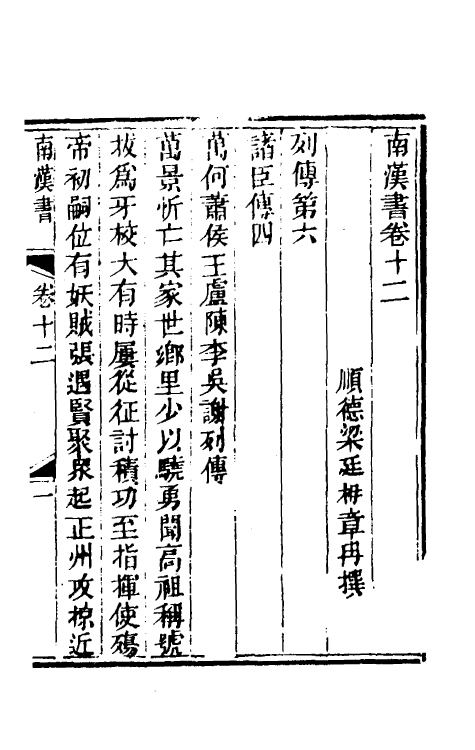 南漢書卷十二
順德梁廷枏章冉撰
列傳第六
諸臣傳四
萬何蕭侯王盧陳李吳謝列傳
萬景忻亡其家世鄉里少以驍勇聞高祖稱號
拔爲牙校大有時屢從征討積功至指揮使殤
帝初嗣位有妖賊張遇賢聚眾起正州攻掠近
南漢書 卷十二 一